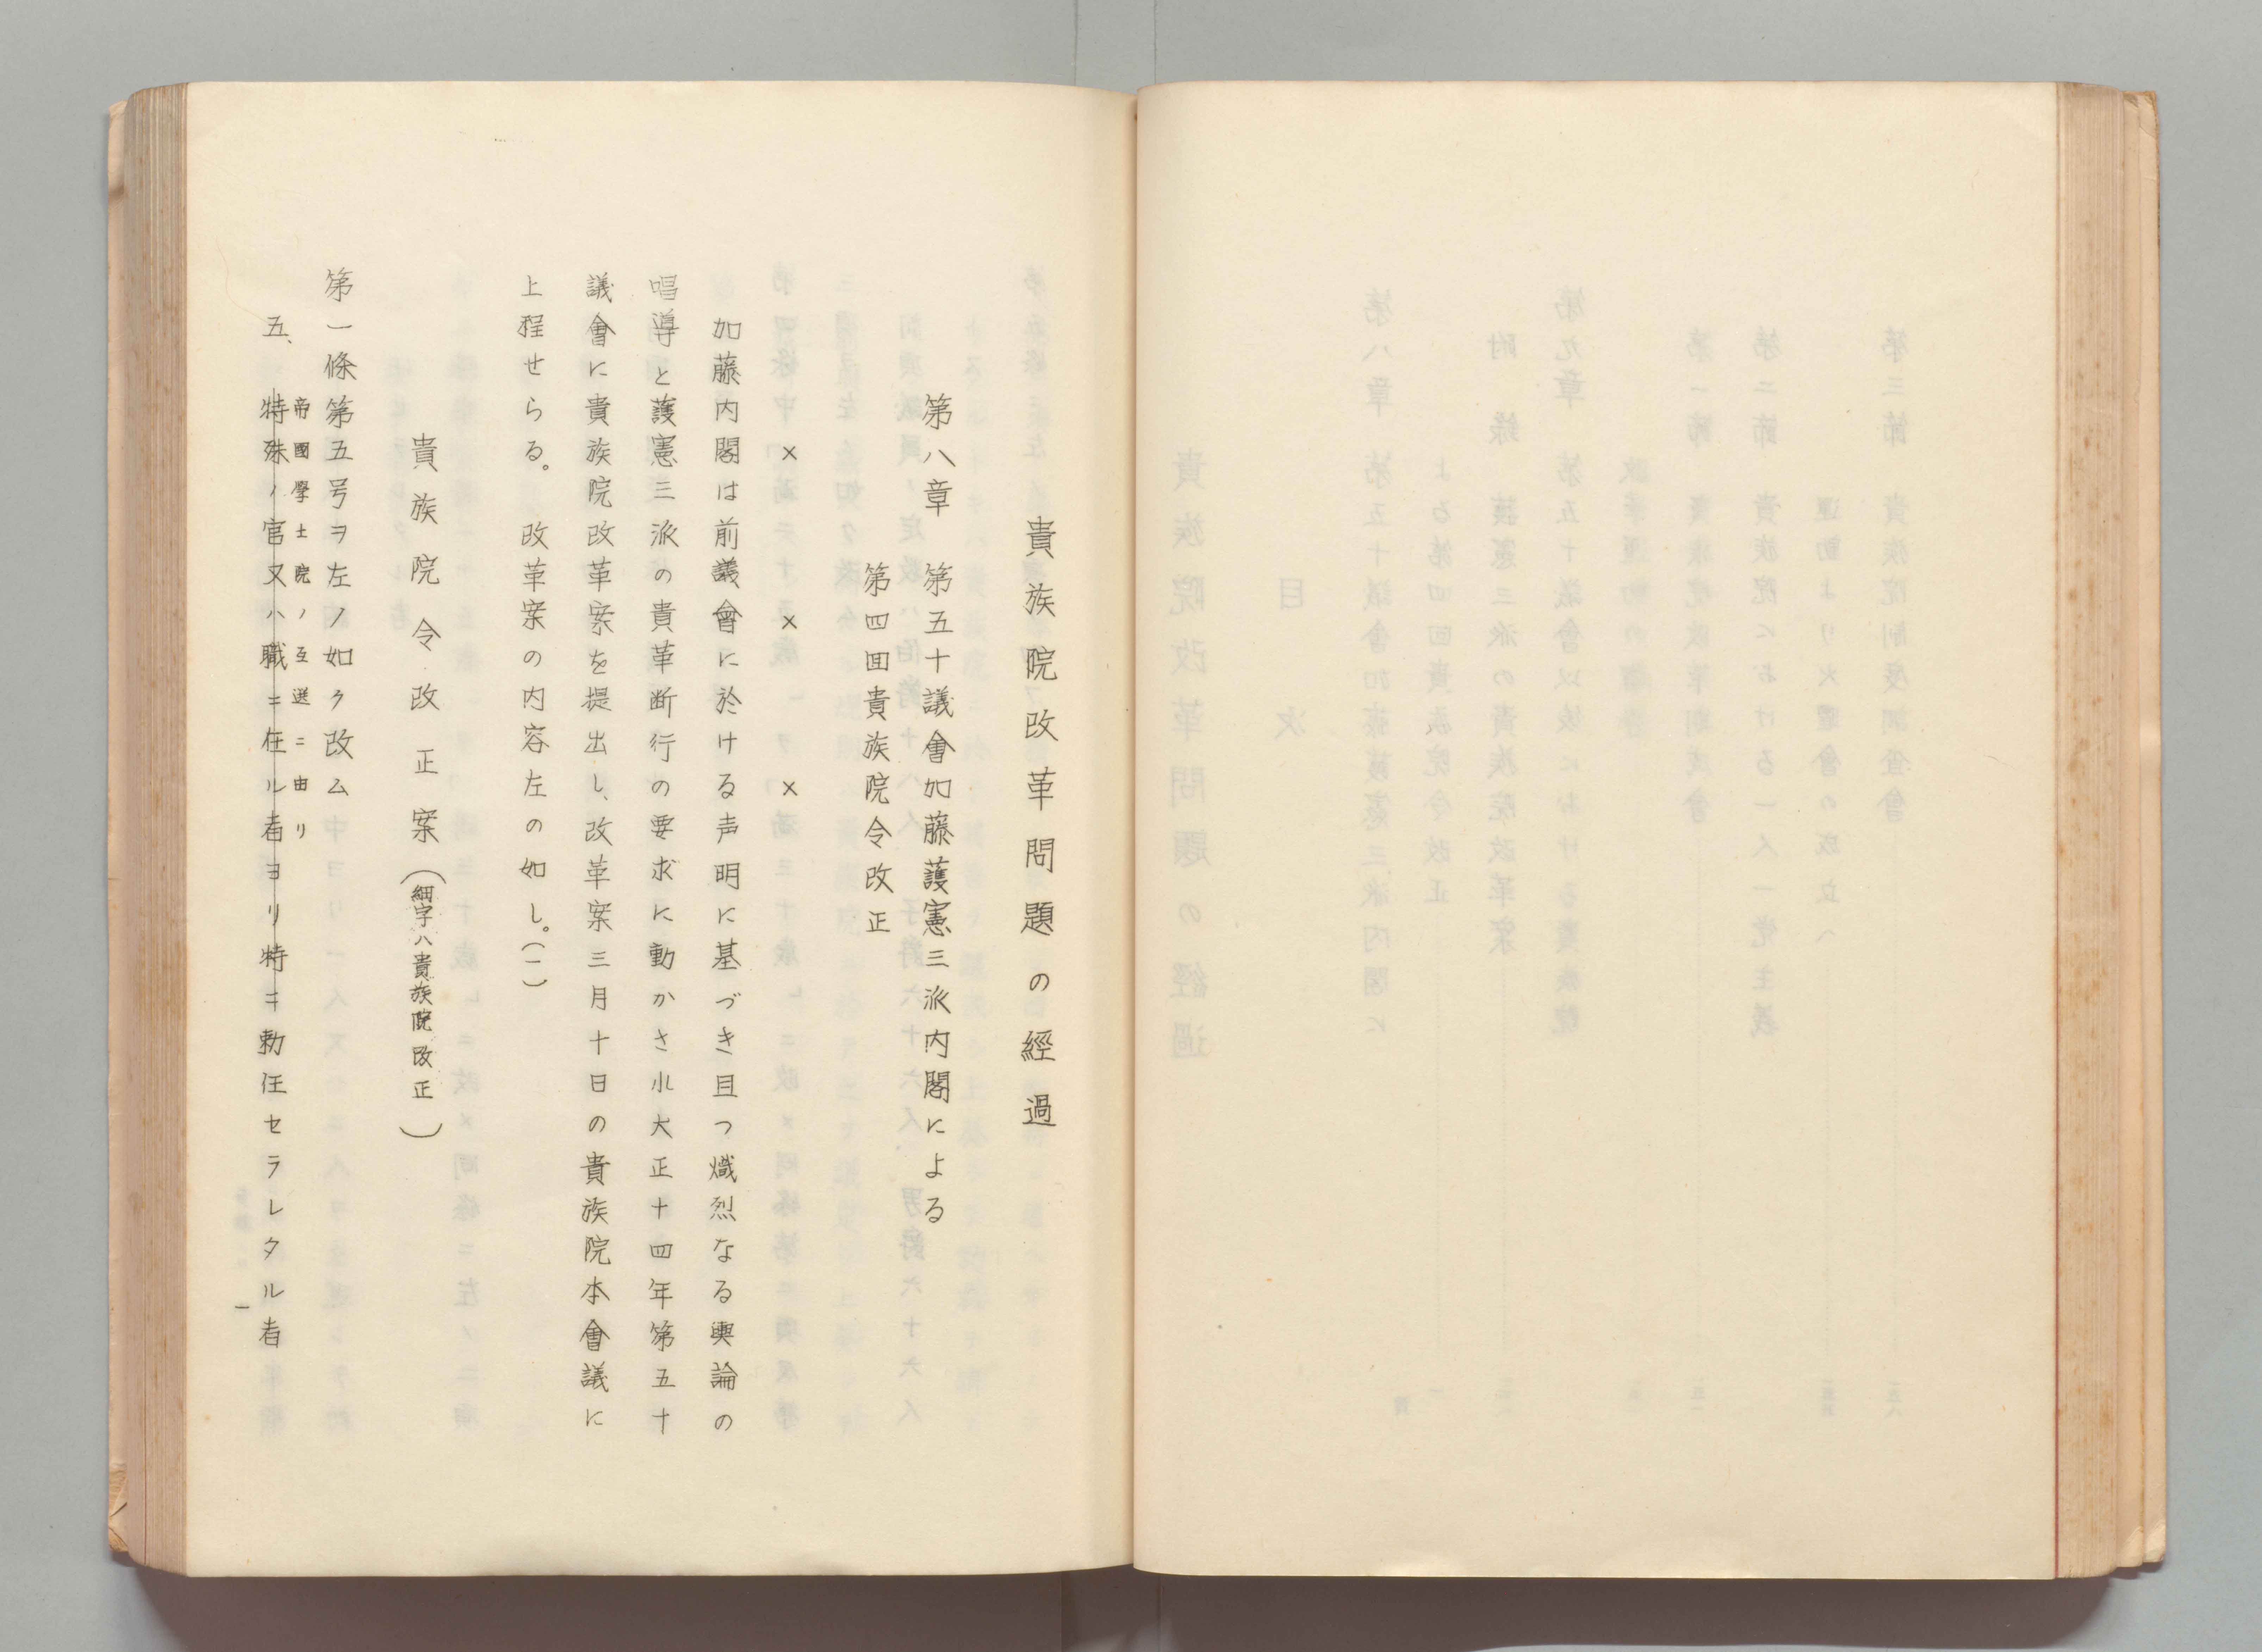 貴族院改革問題の經過
第八章　第五十議會加藤護憲三派内閣による
第四囬貴族院令改正
×　×　×
加藤内閣は前議會に於ける声明に基づき且つ熾烈なる輿論の
唱導と護憲三派の貴革断行の要求に動かされ大正十四年第五十
議會に貴族院改革案を提出し、改革案三月十日の貴族院本會議に
上程せらる。　改革案の内容左の如し。(一)
貴族院令改正案(細字ハ貴族院改正)
第一條第五号ヲ左ノ如ク改ム
帝國學士院ノ互選ニ由リ
五、特殊ノ官又ハ職ニ在ル者ヨリ特ニ勅任セラレタル者
一